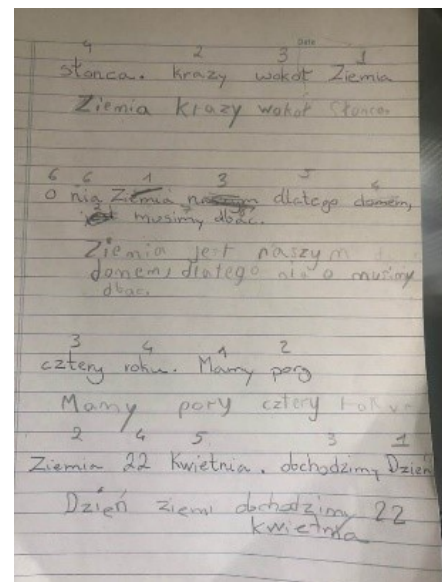 Date
4 2 3 1
słonca. krazy wokoł Ziemia
Ziemia krazy wokoł Słonca.
6 6 1 3 5 4
O nią Ziemia naszym dlatego domem,
jest musimy dbac.
Ziemia jest naszym
domem, dlatego nia o musimy
dbac.
3 4 1 2
cztery roku. Mamy pory
Mamy pory cztery roku
2 4 5 3 1
Ziemia 22 Kwietnia. obchodzimy Dzień
Dzień ziemi obchodzimy 22
kwietnia